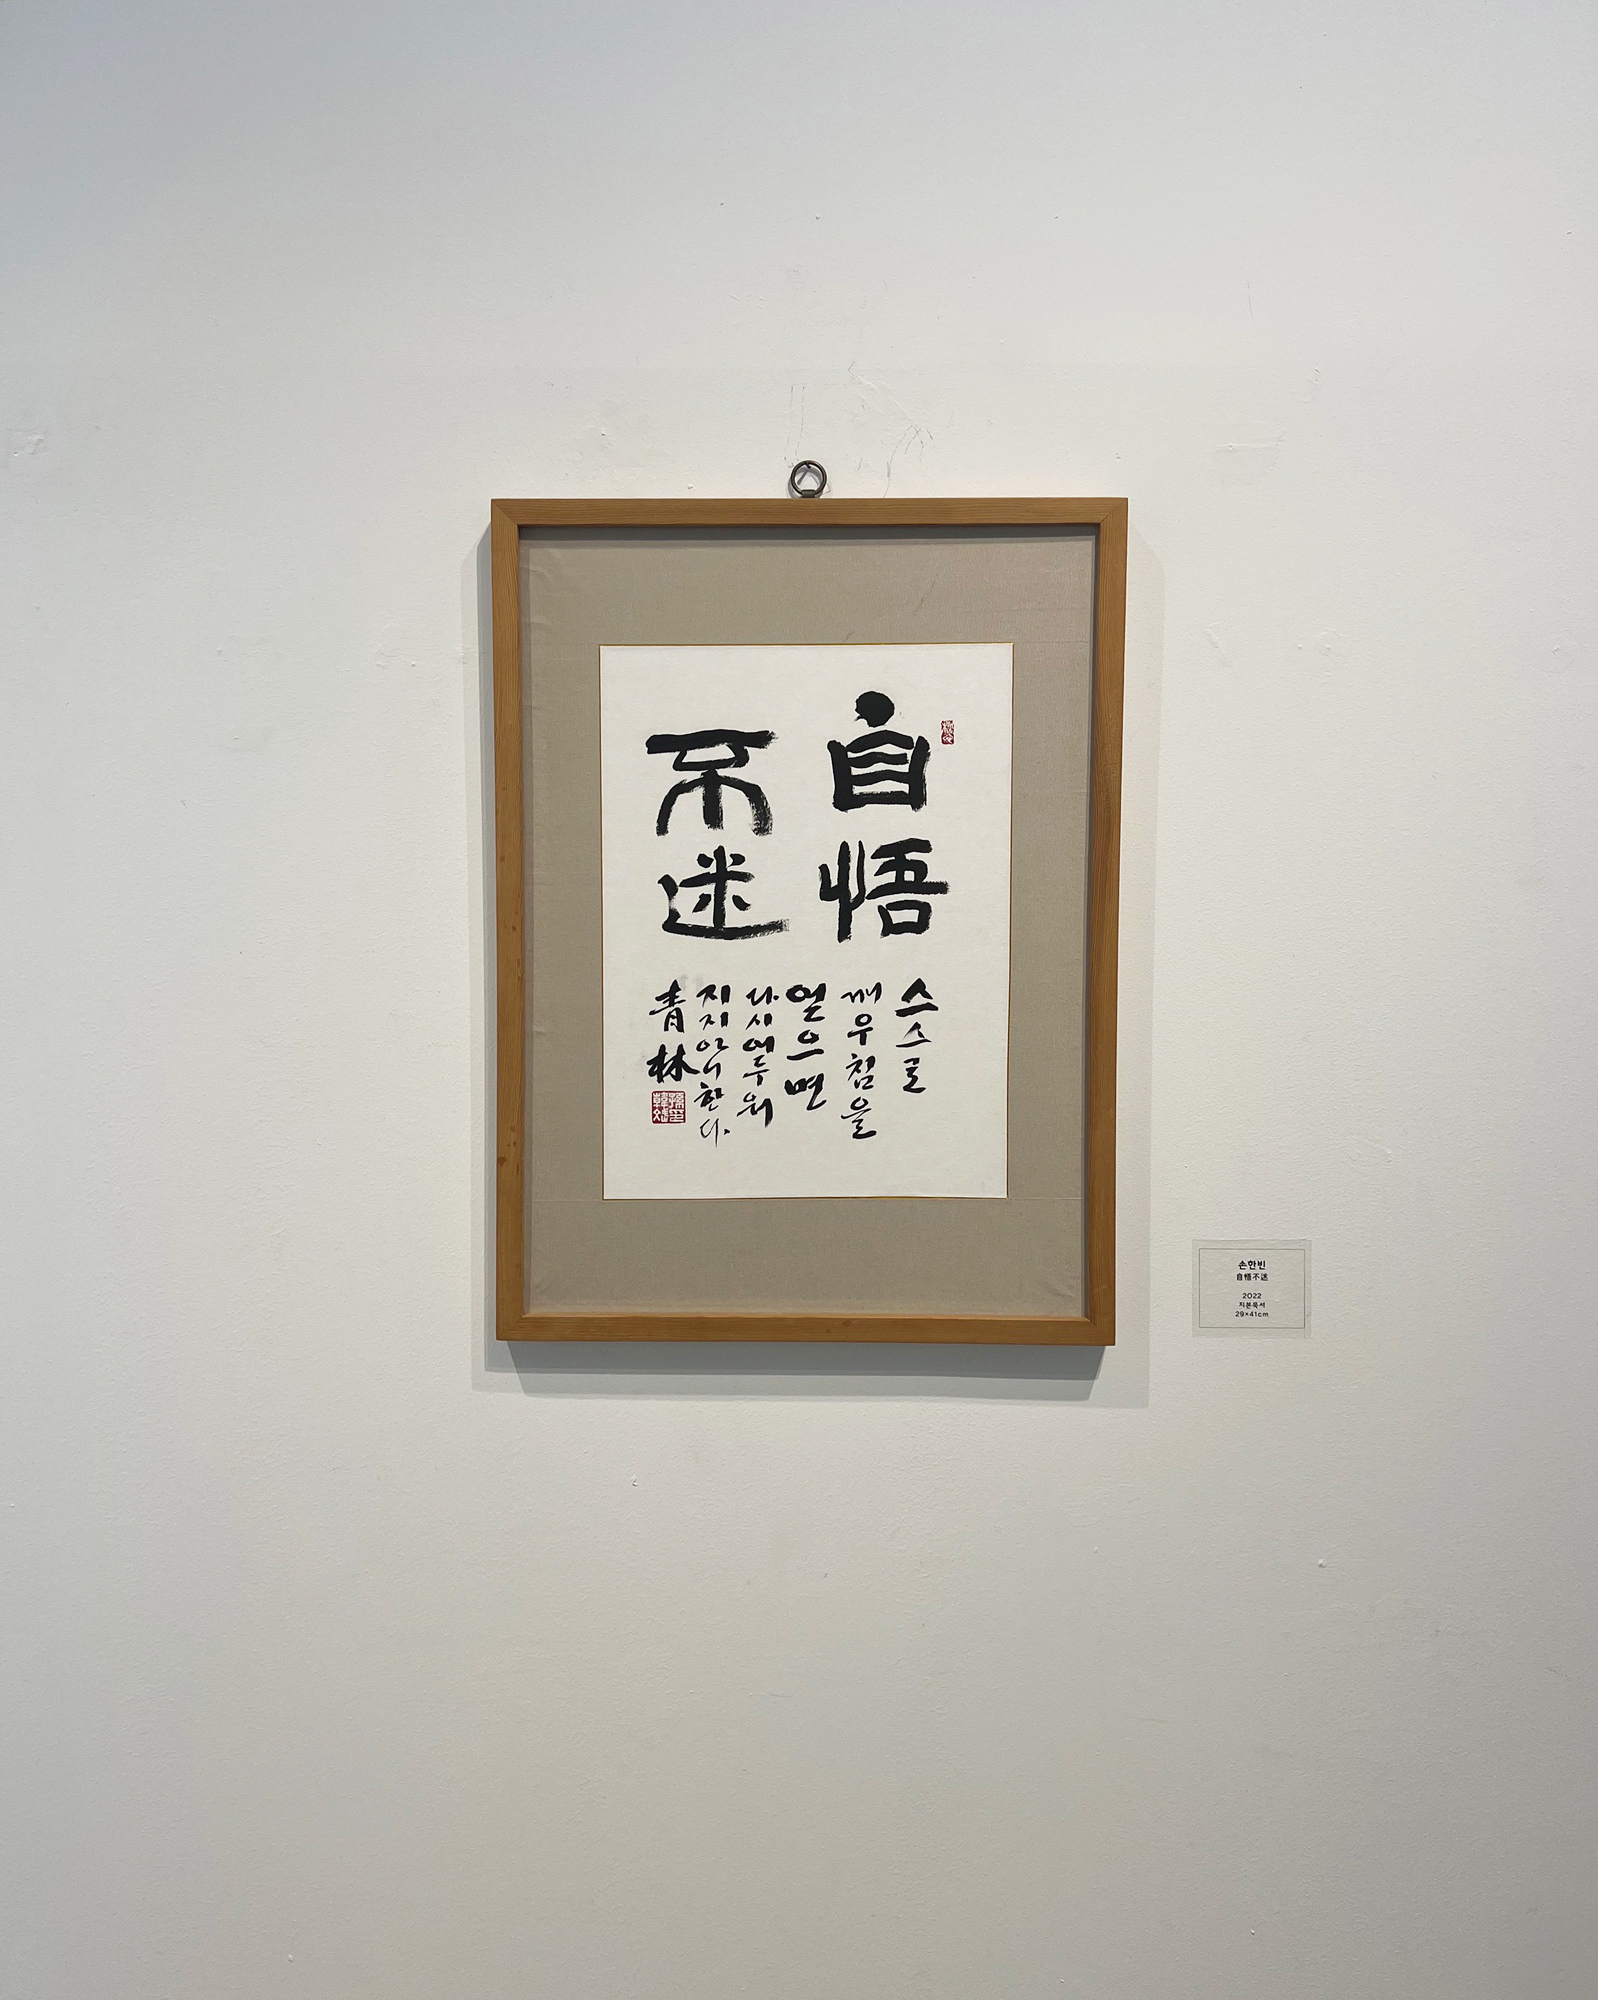 自悟
不迷
스스로
깨우침을
얻으면
다시 어두워
지지 아니한다.
青林
손한빈
自悟不迷
2022
지본묵서
29×41cm